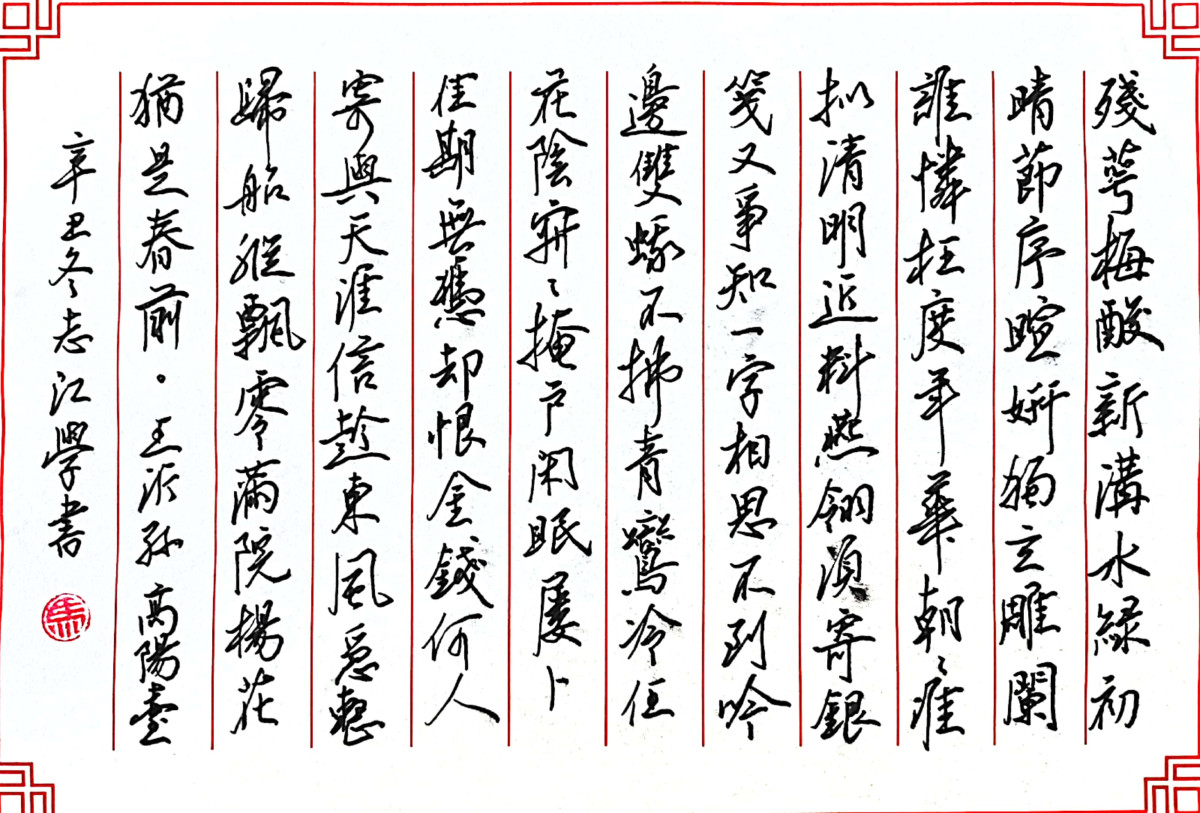 殘萼梅酸新溝水綠初
晴節序暄妍獨立雕闌
誰憐枉度年華朝〻準
擬清明近料燕翎須寄銀
箋又爭知一字相思不到吟
邊雙蛾不拂青鸞冷任
花陰寂〻掩户闲眠屢卜
佳期無憑却恨金錢何人
寄與天涯信趁東風急整
歸船縱飄零滿院楊花
猶是春前。王沂孫高陽臺
辛丑冬志江學書